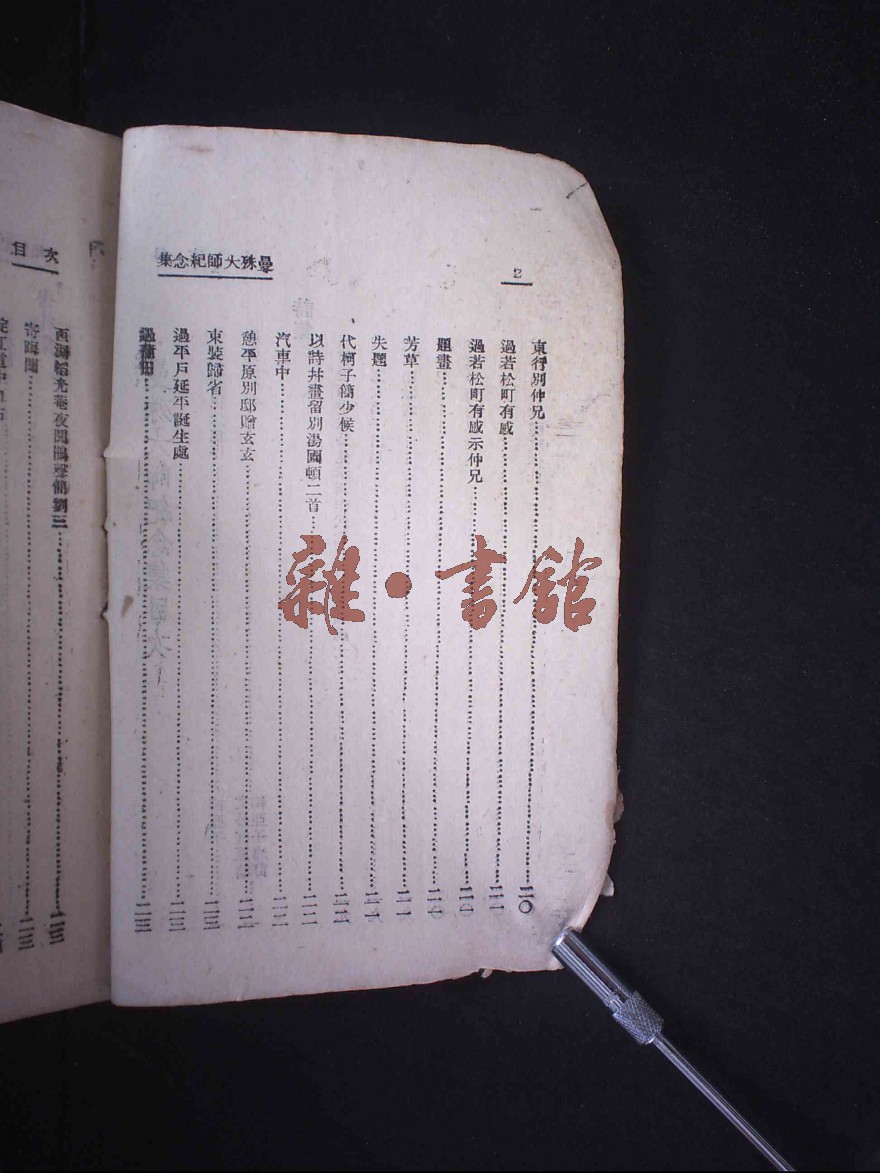 曼殊大師紀念集
2
東行別仲兄……二〇
過若松町有感……二一
過若松町有感示仲兄……
題畫……二一
芳草……二一
失題……二一
代柯子簡少候……
以詩并畫留別湯國頓二首……二二
汽車中……二二
憩平原別邸贈玄玄……二二
東裝歸省……二三
過平戶延平誕生處……二三
過蒲田……二三
目次
西湖韜光菴夜聞鵑聲簡劉三……二三
寄晦聞……二三
淀江道中口占
雜·書館